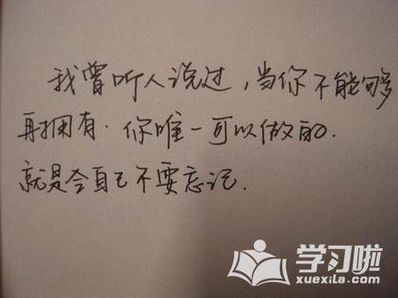 我曾听人说过，当你不能够
再拥有．你唯一可以做的．
就是令自己不要忘记．
学习啦
xuexila.com